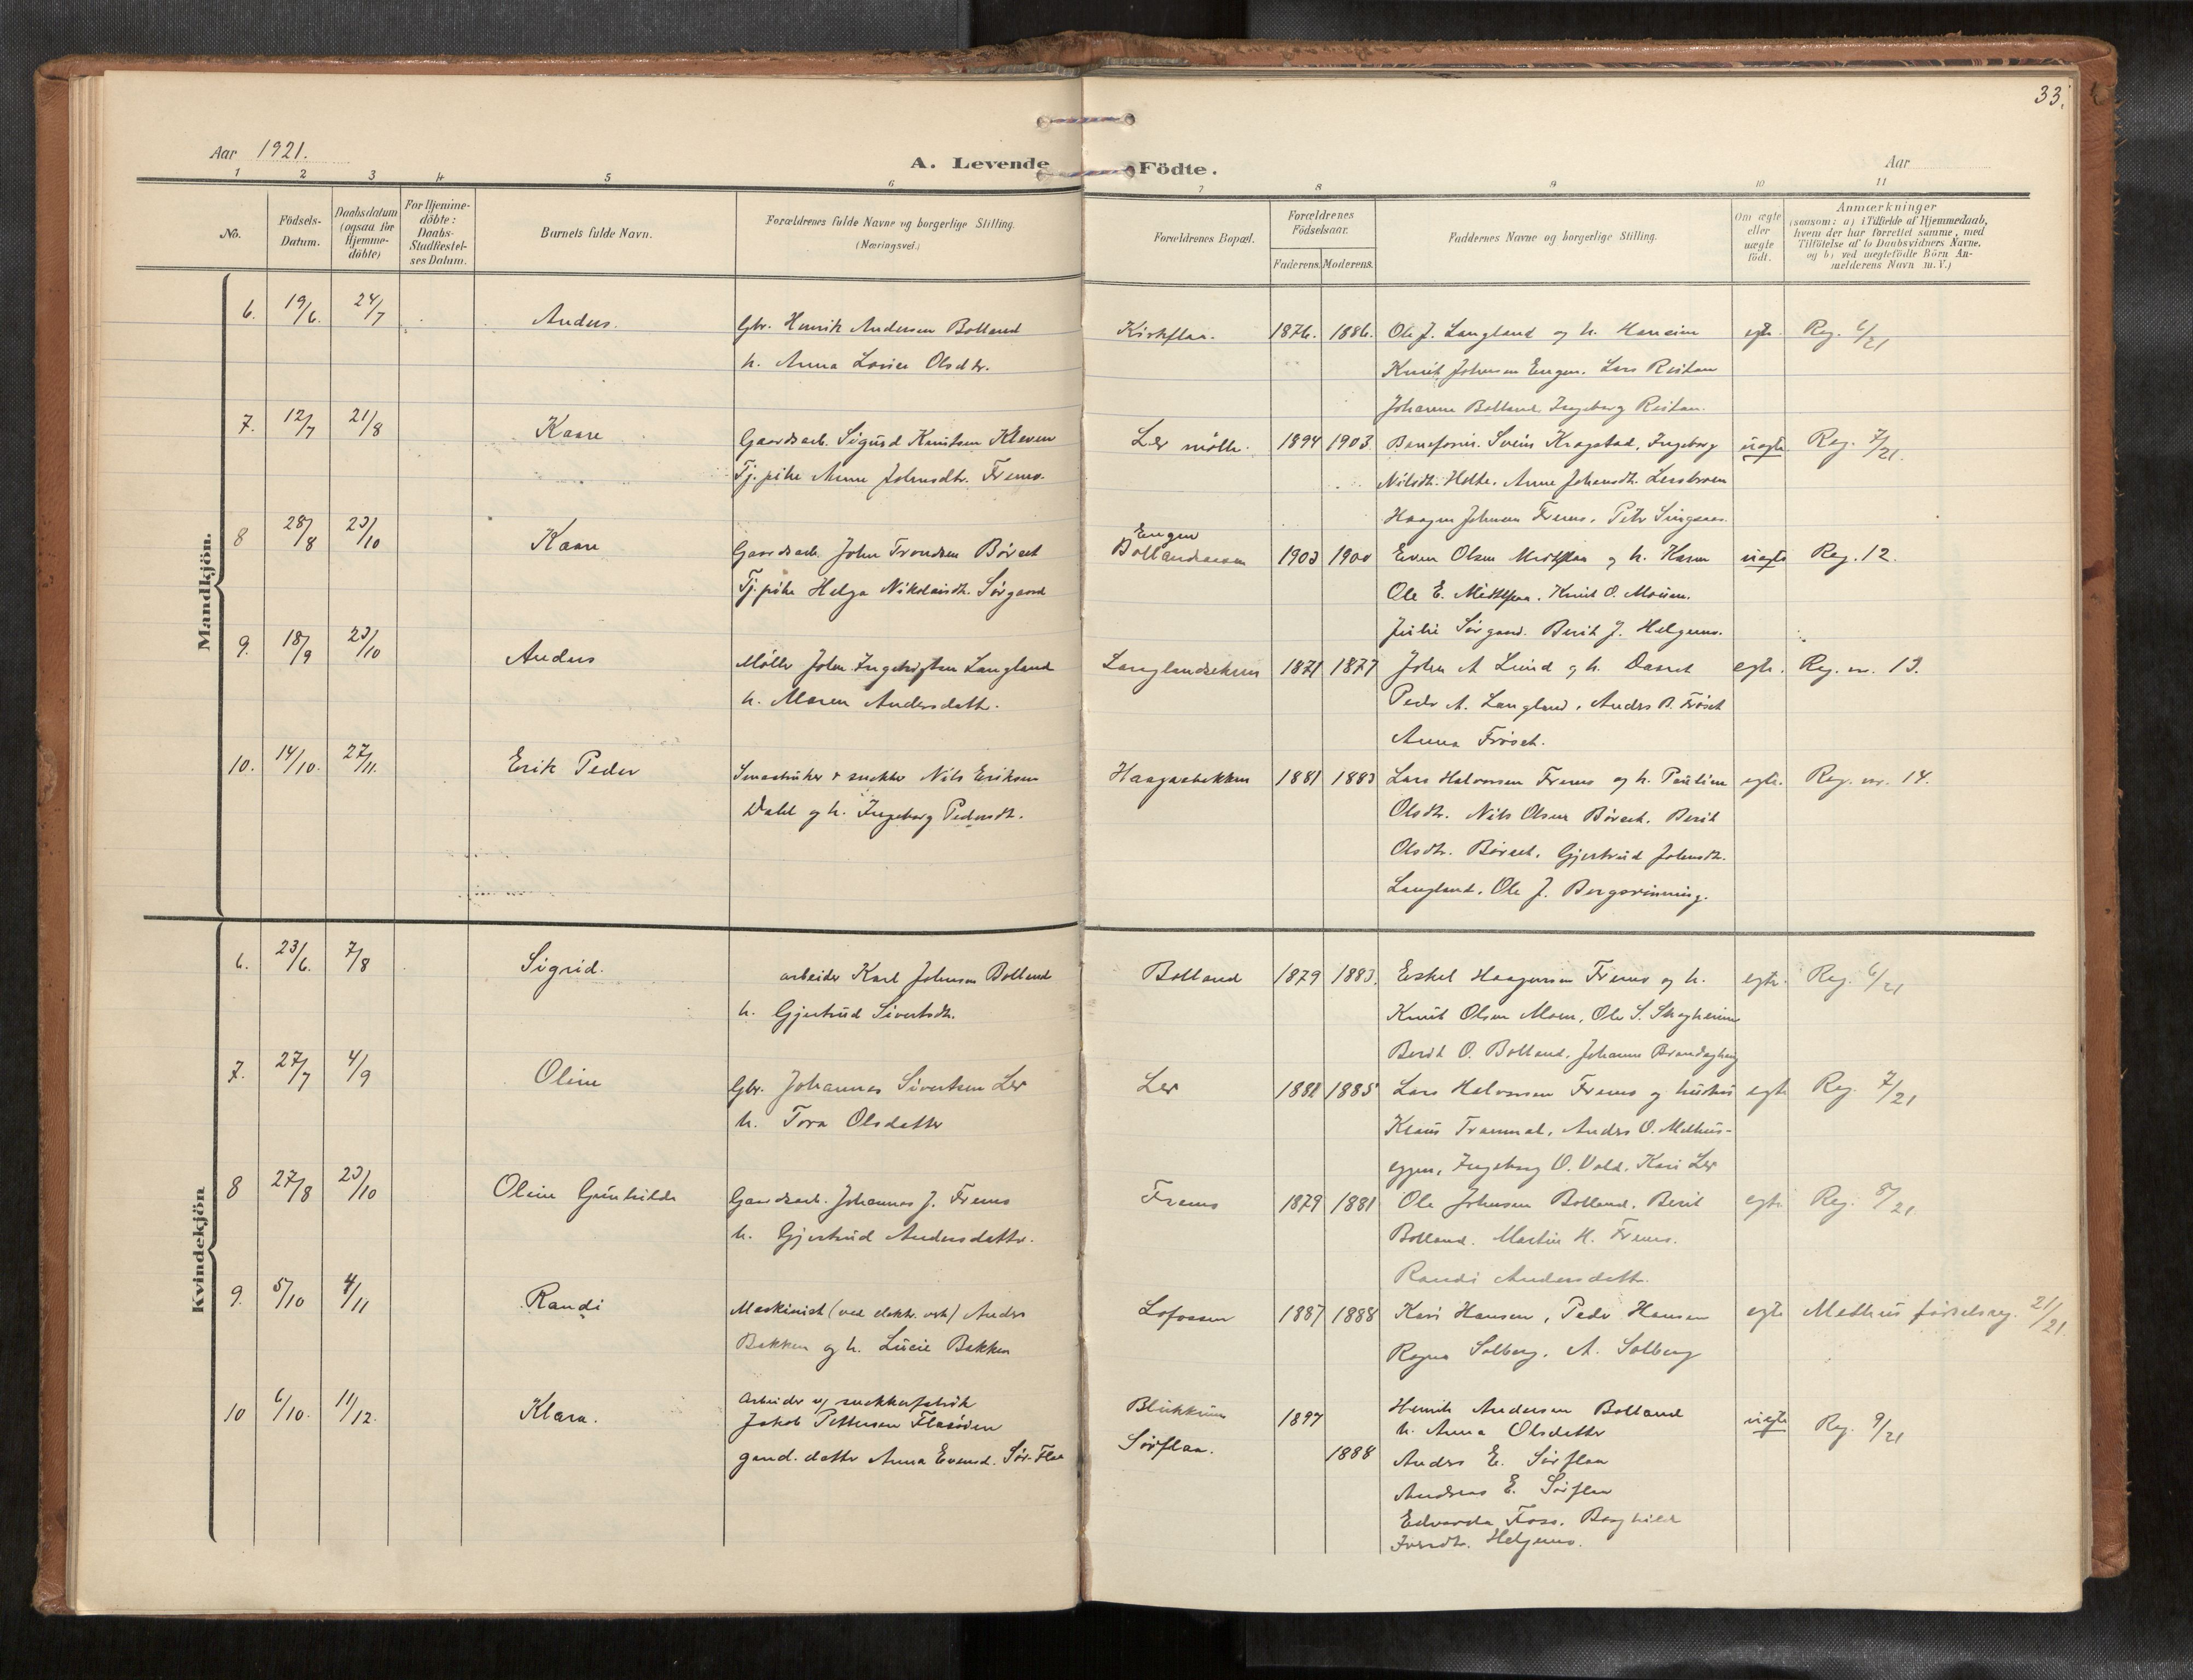 33.
Aar 1921.
A. Levende Födte.
Aar
1 2 3 4 5 6 7 8 9 10 11
No.
Födsels-Datum.
Daabsdatum (ogsaa for Hjemme-döbte)
For Hjemme-döbte: Daabs-Stadfæstel-ses Datum.
Barnets fulde Navn.
Forældrenes fulde Navne og borgerlige Stilling.
(Næringsvei.)
Forældrenes Bopæl.
Forældrenes Födselsaar.
Faderens. Moderens.
Faddernes Navne og borgerlige Stilling.
Om ægte eller uægte födt.
Anmærkninger
(saasom: a) i Tilfælde af Hjemmedaab,
hvem der har forrettet samme, med
Tilföielse af to Daabsvidners Navne,
og b) ved uægtefödte Börn An-
melderens Navn m. V.)
Mandkjön.
6. 19/6. 24/7 Anders. Gbr. Henrik Andersen Bolland Kirkflaa. 1876. 1886. Ole J. Langland og h. egte. Reg. 6/21
h. Anna Lovise Olsdtr. Knut Johnsen Engen. Lars Reitan
Johanna Bolland Ingeborg Reitan.
7. 12/7 21/8 Kaare Gaardsarb. Sigurd Knutsen Kleven Ler mölle. 1894 1903. Svein Kragstad, Ingeborg uægte Reg. 7/21.
Tj. pike Anne Johnsdtr. Fremo. Nilsdtr. Holte. Anne Johnsdtr.
Haagen Johnsen Fremo. Petr Singsaas.
8 28/8 23/10 Kaare Gaardsarb. John Trondsen Børset Engen Bollandsaasen 1903 1900 Even Olsen Midtflaa og h. Karen uægte Reg. 12.
Tj. pike Helga Nikolaisdtr. Sørgaard Ole E. Midtflaa. Knut O. Moen.
Julie Sørgaard. Berit J. Helgemo.
9. 18/9 23/10 Anders Møller John Ingebrigtsen Langland 1871 1877 John A Lund og h. egte. Reg. nr. 13.
h. Maren Andersdatter. Peder A. Langland, Anders P. Frøset
Anna Frøset.
10. 14/10. 27/11. Erik Peder Smaabruker & snekker Nils Eriksen Haagaabakken 1881 1883 Lars Halvorsen Fremo og h. Pauline egte. Reg. nr. 14.
Dahl og h. Ingeborg Pedersdtr. Olsdtr. Nils Olsen Børset. Berit
Olsdtr. Børset, Gjertrud Johnsdtr.
Langland. Ole J. Bergsrønning.
Kvindekjön
6. 23/6. 7/8 Sigrid. arbeider Karl Johnsen Bolland Bolland 1879 1883. Eskel Haagensen Fremo og h. egte. Reg. 6/21
h. Gjertrud Sivertsdtr. Knut Olsen Moen, Ole S. Skogheim
Berit O. Bolland. Johanne
7. 27/7 4/9 Oline Gbr. Johannes Sivertsen Ler Ler 1882 1885 Lars Halvorsen Fremo og hustru egte Reg. 7/21
h. Tora Olsdatter Klaus Anders O. Melhus-
eggen, Ingeborg O. Vold. Kari Ler
8 27/8 23/10 Oline Gunhilda Gaardsarb. Johannes J. Fremo Fremo 1879 1881 Ole Johnsen Bolland. Berit egte Reg. 8/21.
h. Gjertrud Andersdatter. Bolland. Martin H. Fremo.
Randi Andersdatter.
9. 5/10 4/11 Randi Maskinist (ved elektr. verk) Anders Lofossen 1887 1888 Kari Hansen, Peder Hansen egte Melhus fødselsreg. 21/21.
Bakken og h. Lucie Bakken Ragna Solberg. A. Solberg
10 6/10. 11/12. Klara. Arbeider v/ snekkerfabrik Henrik Andersen Bolland uægte Reg. 9/21
Jakob Pettersen Flaaöien 1897 h. Anna Olsdatter
gaard. datter Anna Evensd. Sør-Flaa Sørflaa. 1888 Anders E. Sørflaa
Andreas E. Sørflaa
Edvarda Foss. Borghild
Helgemo.